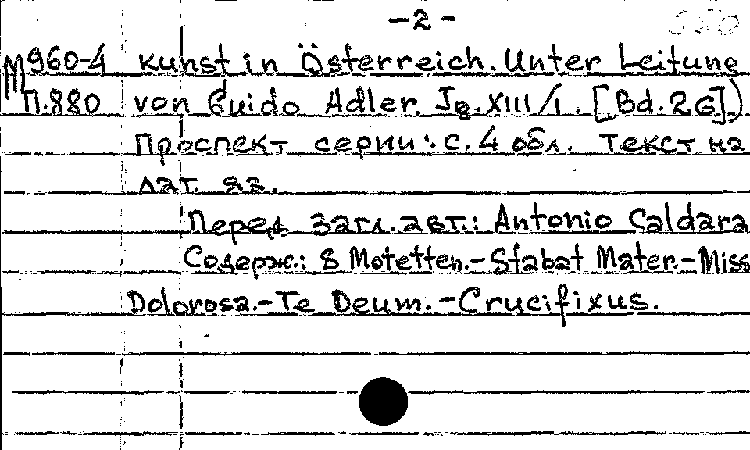 -2-
М 960-4 kunst in Österreich. Unter Leitung
П.880 von Guido Adler. Jg. XIII/1. [Bd. 26].)
Проспект серии: с. 4 обл. Текст на
лат. яз.
Перед загл. авт.: Antonio Caldara
Содерж.: 8 Motetten.-Stabat Mater.-Miss
Dolorosa.-Te Deum.-Crucifixus.